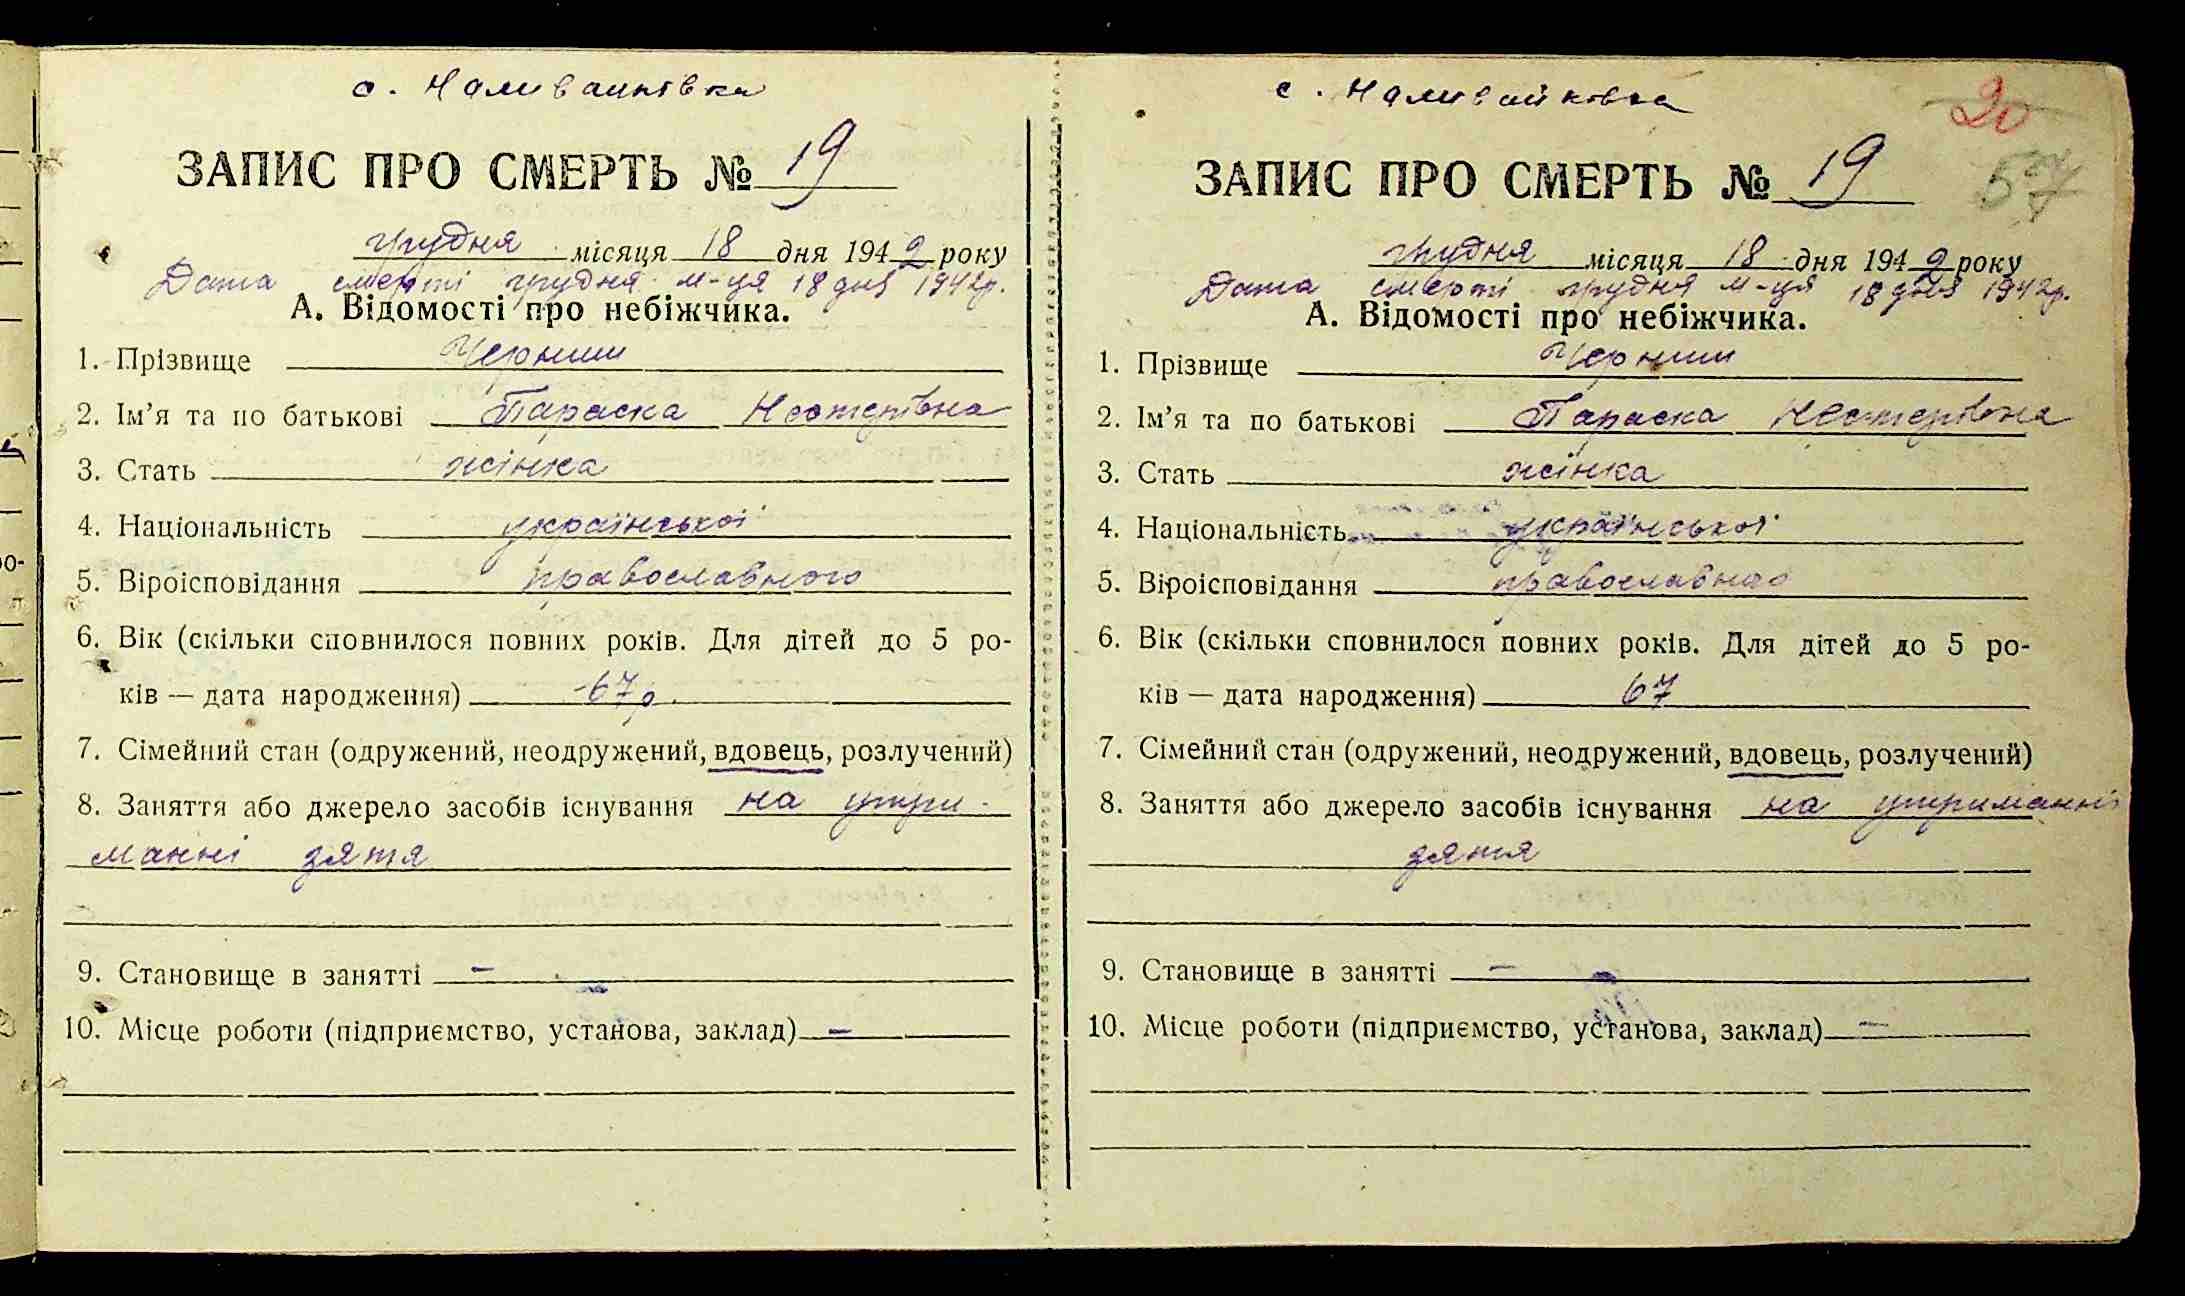 с. Наливайківка
ЗАПИС ПРО СМЕРТЬ № 19
грудня місяця 18 дня 1942 року
Дата смерті грудня м-ця 18 дня 1942р.
А. Відомості про небіжчика.
1. Прізвище Черниш
2. Ім'я та по батькові Параска Нестерівна
3. Стать жінка
4. Національність української
5. Віроісповідання православного
6. Вік (скільки сповнилося повних років. Для дітей до 5 ро-
ків — дата народження) 67 р.
7. Сімейний стан (одружений, неодружений, вдовець, розлучений)
8. Заняття або джерело засобів існування на утри-
манні зятя
9. Становище в занятті –
10. Місце роботи (підприємство, установа, заклад) –
с. Наливайківка
20
57
ЗАПИС ПРО СМЕРТЬ № 19
грудня місяця 18 дня 1942 року
Дата смерті грудня м-ця 18 дня 1942р.
А. Відомості про небіжчика.
1. Прізвище Черниш
2. Ім'я та по батькові Параска Нестерівна
3. Стать жінка
4. Національність української
5. Віроісповідання православного
6. Вік (скільки сповнилося повних років. Для дітей до 5 ро-
ків — дата народження) 67
7. Сімейний стан (одружений, неодружений, вдовець, розлучений)
8. Заняття або джерело засобів існування на утриманні
зятя
9. Становище в занятті –
10. Місце роботи (підприємство, установа, заклад) –